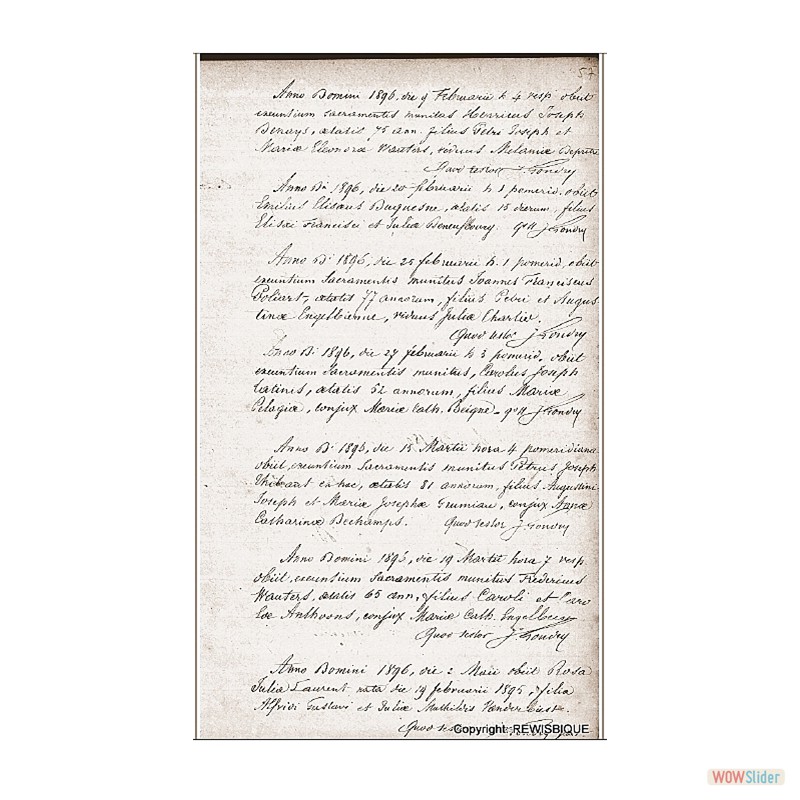 57
Anno Domini 1896, die 9 Februarii h 4 vesp obiit
exeuntium sacramentis munitus Henricus Joseph
Denays, ætatis 75 ann. filius Petri Joseph et
Mariæ Eleonoræ Wauters, viduus Melaniæ
Quod testor J. Gondry
Anno Dⁱ 1896, die 20 februarii h 1 pomerid. obiit
Emilius Elisaus Duquesne, ætatis 15 dierum, filius
Elisæi Francisci et Juliæ qd tt J. Gondry
Anno Dⁱ 1896, die 25 februarii h. 1 pomerid, obiit
exeuntium Sacramentis munitus Joannes Franciscus
Poliart, ætatis 77 annorum, filius Petri et Augus
tinæ Engelbienne, viduus Juliæ Charlie.
Quod testor J. Gondry
Anno Dⁱ 1896, die 27 februarii h 3 pomerid. obiit
exeuntium Sacramentis munitus, Carolus Joseph
Catinis, ætatis 52 annorum, filius Mariæ
Pelagiæ, conjux Mariæ Cath. Beigne. qd tt J. Gondry
Anno Dⁱ 1896, die 15 Martii hora 4 pomeridiana
obiit, exeuntium Sacramentis munitus Petrus Joseph
Thibeaut ex hac, ætatis 81 annorum, filius Augustini
Joseph et Mariæ Josephæ Grumiau, conjux Mariæ
Catharinæ Dechamps. Quod testor J. Gondry
Anno Domini 1896, die 19 Martii hora 7 vesp
obiit, exeuntium Sacramentis munitus Fredericus
Wauters, ætatis 65 ann, filius Caroli et Caro
læ Anthoons, conjux Mariæ Cath. Engelbeen
Quod testor J. Gondry
Anno Domini 1896, die 2 Maii obiit Rosa
Julia Laurent nata die 19 februarii 1895, filia
Alfridi Gustavi et Juliæ Mathildis Vander Eiste.
Quod testor
Copyright: REWISBIQUE
WOWSlider